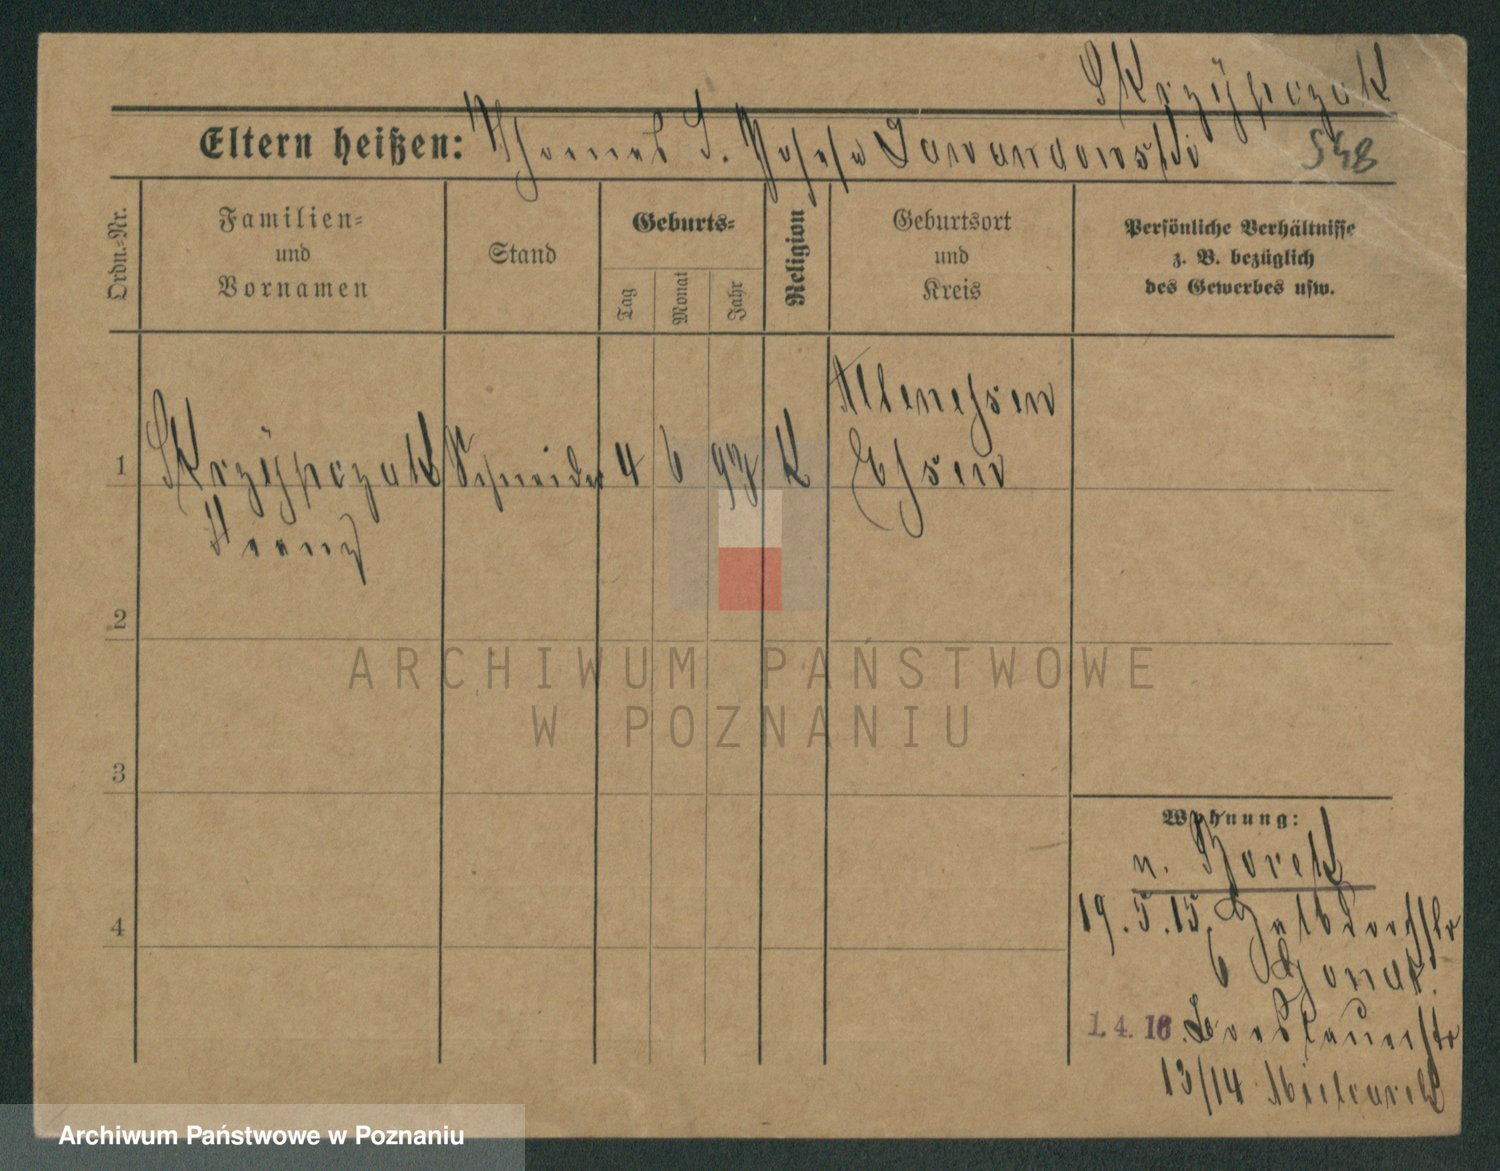 Skrzypczak
Eltern heißen: Thomas u. Josefa Lewandowski
548
Ordn.-Nr.
Familien-
und
Vornamen
Stand
Geburts-
Tag
Monat
Jahr
Religion
Geburtsort
und
Kreis
Persönliche Verhältnisse
z. B. bezüglich
des Gewerbes usw.
1
Skrzypczak
Franz
Schneider
4
6
K
Altenessen
Essen
2
ARCHIWUM PAŃSTWOWE
W POZNANIU
3
Wohnung:
n. Borek
19.5.15. Halbdorfstr
6
4
1.4.16. Breslauerstr
13/14
Archiwum Państwowe w Poznaniu